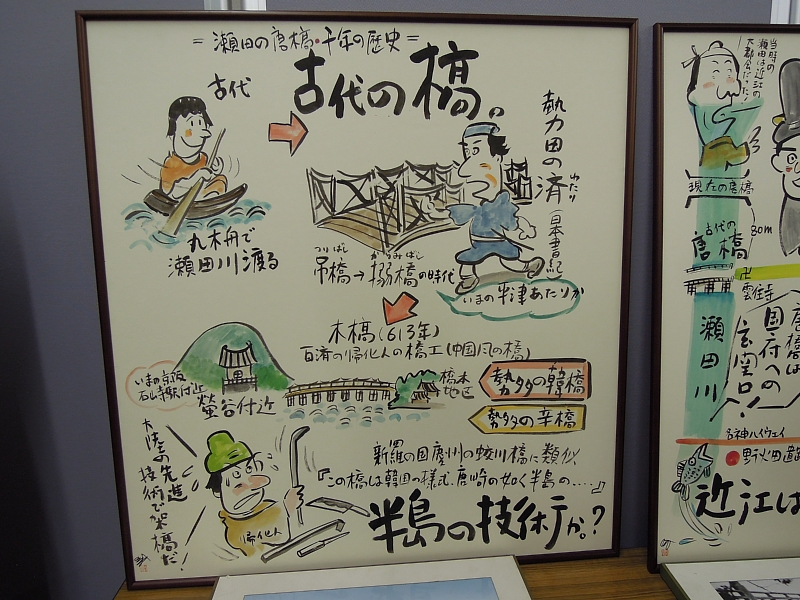 =瀬田の唐橋・千年の歴史=
古代の橋。
古代
丸木舟で
瀬田川渡る
勢力田の済
わたり
(日本書紀)
つりばし
吊橋→搦橋の時代
からみばし
いまの半津あたりか
木橋(613年)
百済の帰化人の橋工(中国風の橋)
いまの京阪
石山寺駅付近
螢谷付近
橋本
地区
勢多の韓橋
勢多の辛橋
大陸の先進
技術で架橋だ!
帰化人
新羅の国慶州の蛟川橋に類似
『この橋は韓国の様式、唐崎の如く半島の....』
半島の技術か。?
当時の
瀬田は近江の
大都会だった!
現在の唐橋
古代の
唐橋
80m
卍
雲住寺
瀬田川
唐橋は
国府への
玄関口!
名神ハイウェイ
近江は